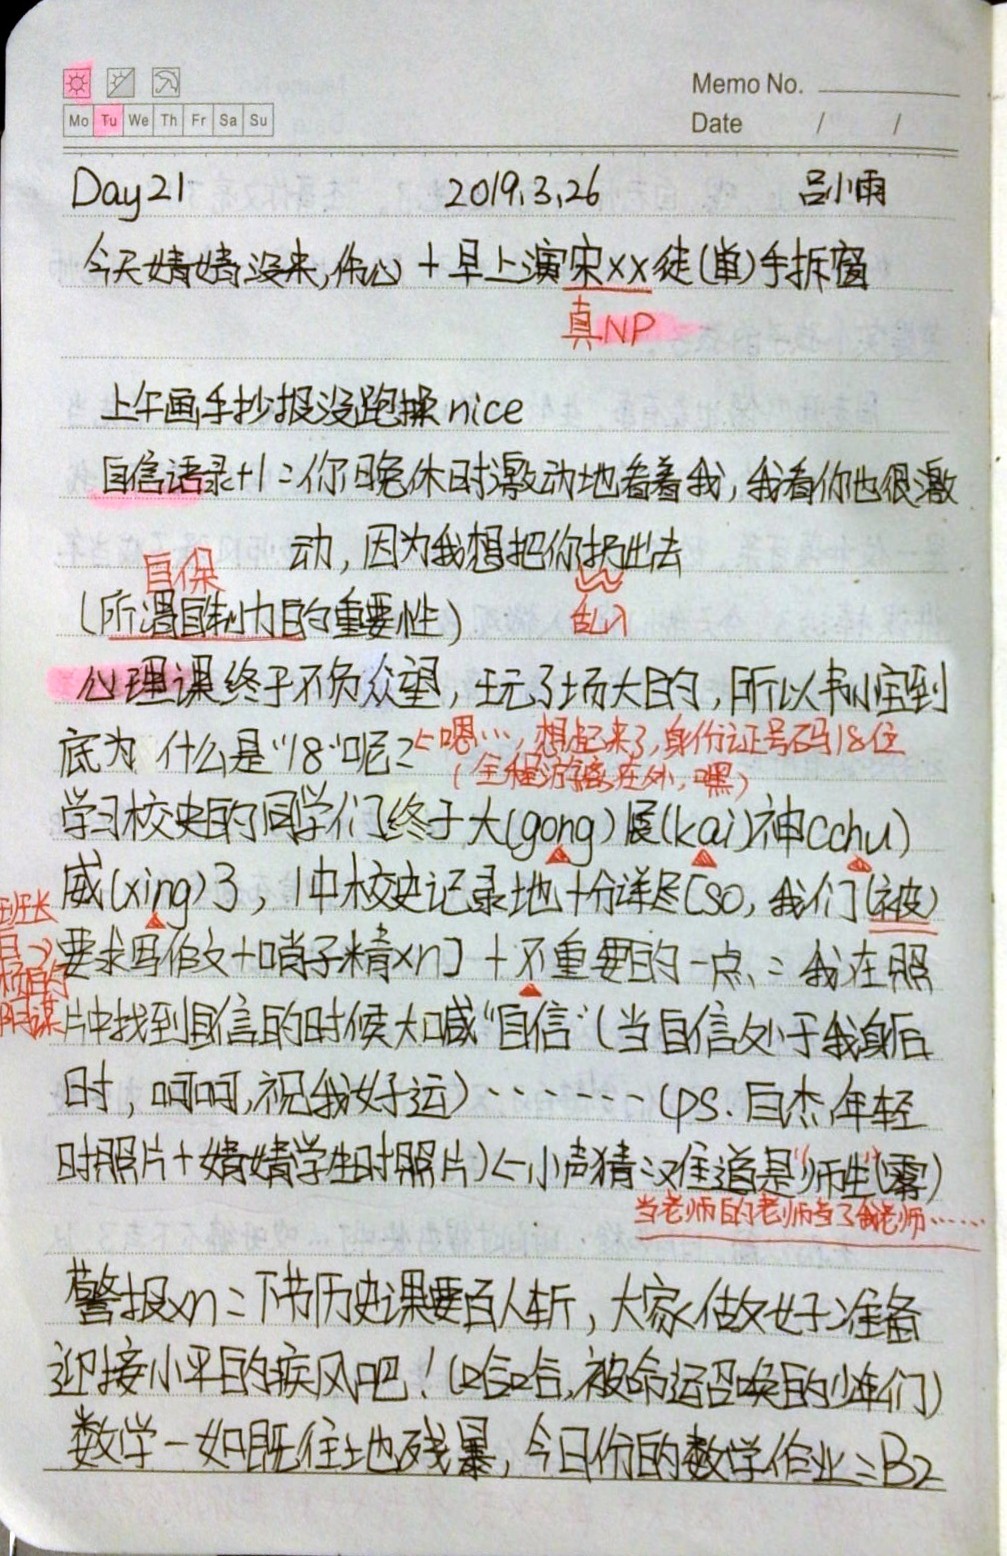 Memo No.
Mo Tu We Th Fr Sa Su
Date / /
Day21 2019.3.26 吕小雨
今天婧婧没来,伤心 + 早上演宋xx徒(单)手拆窗
真NP
上午画手抄报没跑操nice
自信语录+1:你晚休时激动地看着我,我看你也很激
动,因为我想把你扔出去
自保
乱入
(所谓自制力的重要性)
心理课终于不负众望,玩了场大的,所以韦小宝到
底为什么是“18”呢?
←嗯…,想起来了,身份证号码18位
(全程游离在外,嘿)
学习校史的同学们终于大(gong)展(kai)神(chu)
威(xing)了,1中校史记录地十分详尽[so,我们(被)
要求写作文+哨子精xn] +不重要的一点:我在照
片中找到自信的时候大喊“自信”(当自信处于我身后
时,呵呵,祝我好运)……(ps.自杰年轻
时照片+婧婧学生时照片)←小声猜汉难道是“师生”(雾)
当老师的老师当了我老师……
警报xn:下节历史课要百人斩,大家做好准备
迎接小平的疾风吧!(哈哈,被命运召唤的少年们)
数学一如既往地残暴,今日份的数学作业:B2